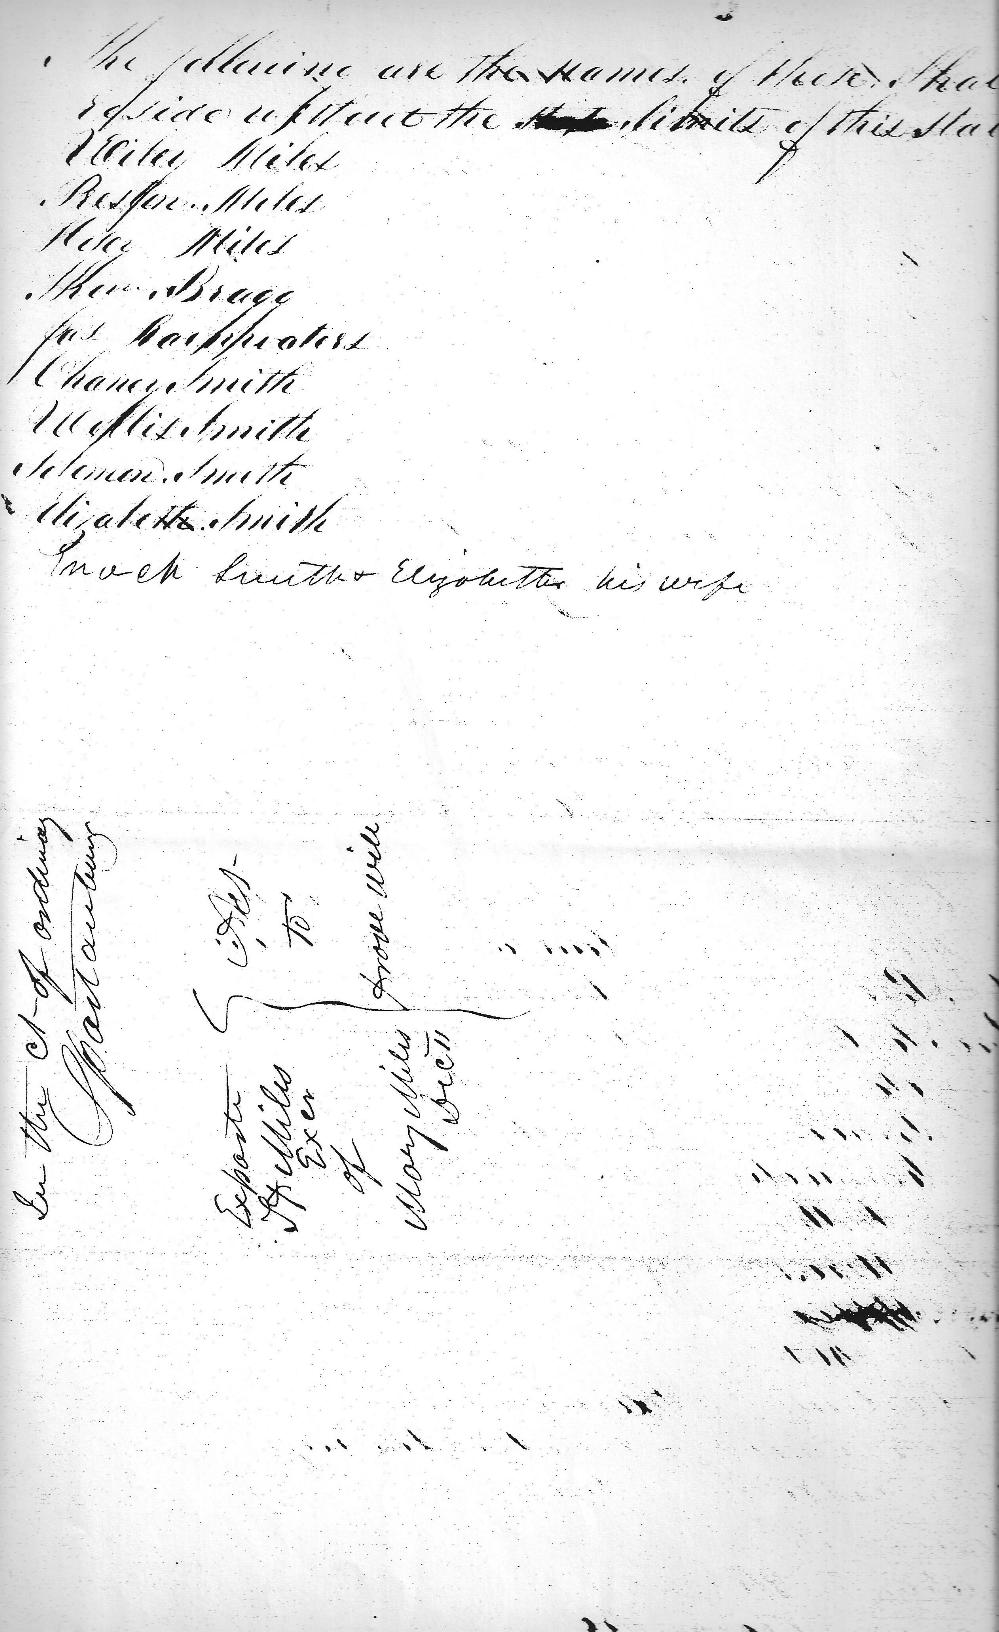 The following are the names of those that
reside without the limits of this stat
Wiley Miles
Miles
Miles
Bragg
Jas
Chaney Smith
Willis Smith
Solomon Smith
Elizabeth Smith
Enoch Smith & Elizabeth his wife
In the ct of ordinary
Spartanburg
Exparte
Miles
Exer
of
Mary Miles
Decd
Pet
to
prove will